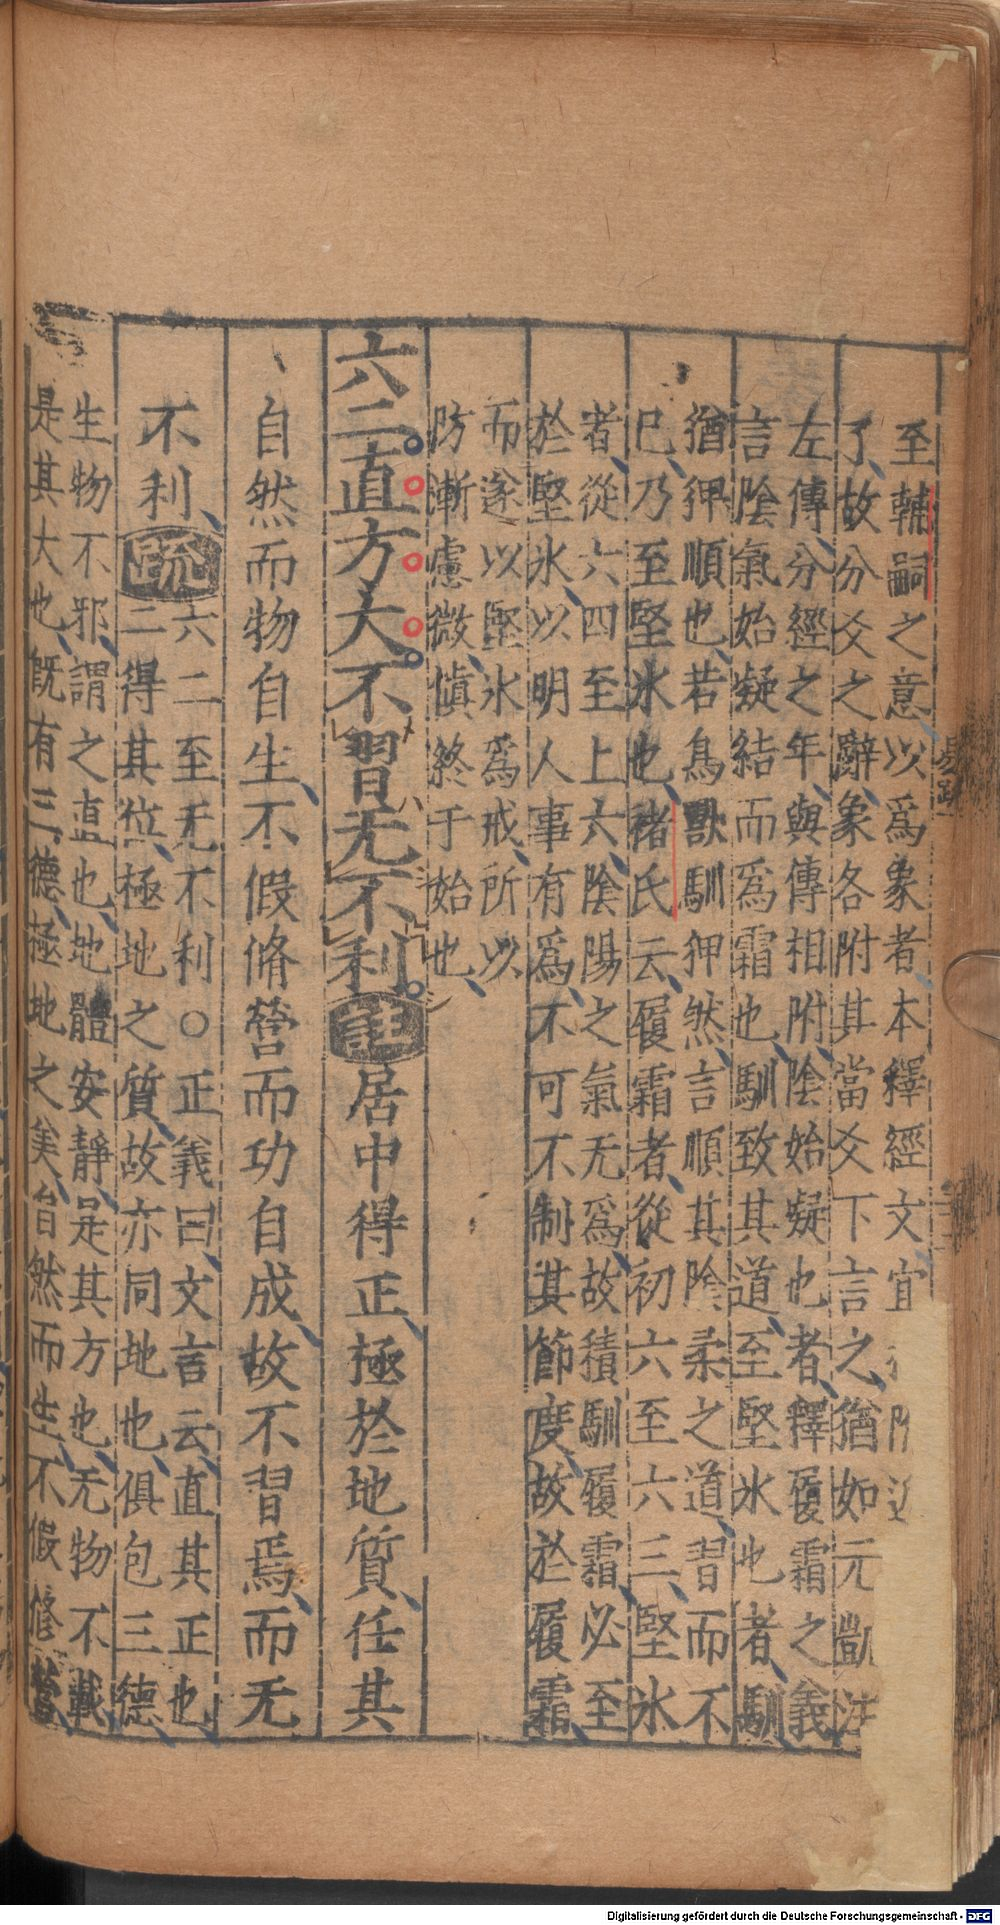 至輔嗣之意以爲象者本釋經文宜
了故分爻之辭象各附其當爻下言之猶如元凱注
左傳分經之年與傳相附陰始凝也者釋履霜之義
言陰氣始凝結而爲霜也馴致其道至堅氷也者馴
猶狎順也若鳥獸馴狎然言順其陰柔之道習而不
已乃至堅氷也禇氏云履霜者從初六至六三堅氷
者從六四至上六陰陽之氣无爲故積馴履霜必至
於堅氷以明人事有爲不可不制其節度故於履霜
而逐以堅氷爲戒所以
防漸慮微慎終于始也
六二直方大不習无不利註居中得正極於地質任其
自然而物自生不假脩營而功自成故不習焉而无
不利疏
六二至无不利○正義曰文言云直其正也
二得其位極地之質故亦同地也俱包三德
生物不邪謂之直也地體安靜是其方也无物不載
是其大也旣有三德極地之美自然而生不假修營
Digitalisierung gefördert durch die Deutsche Forschungsgemeinschaft - DFG